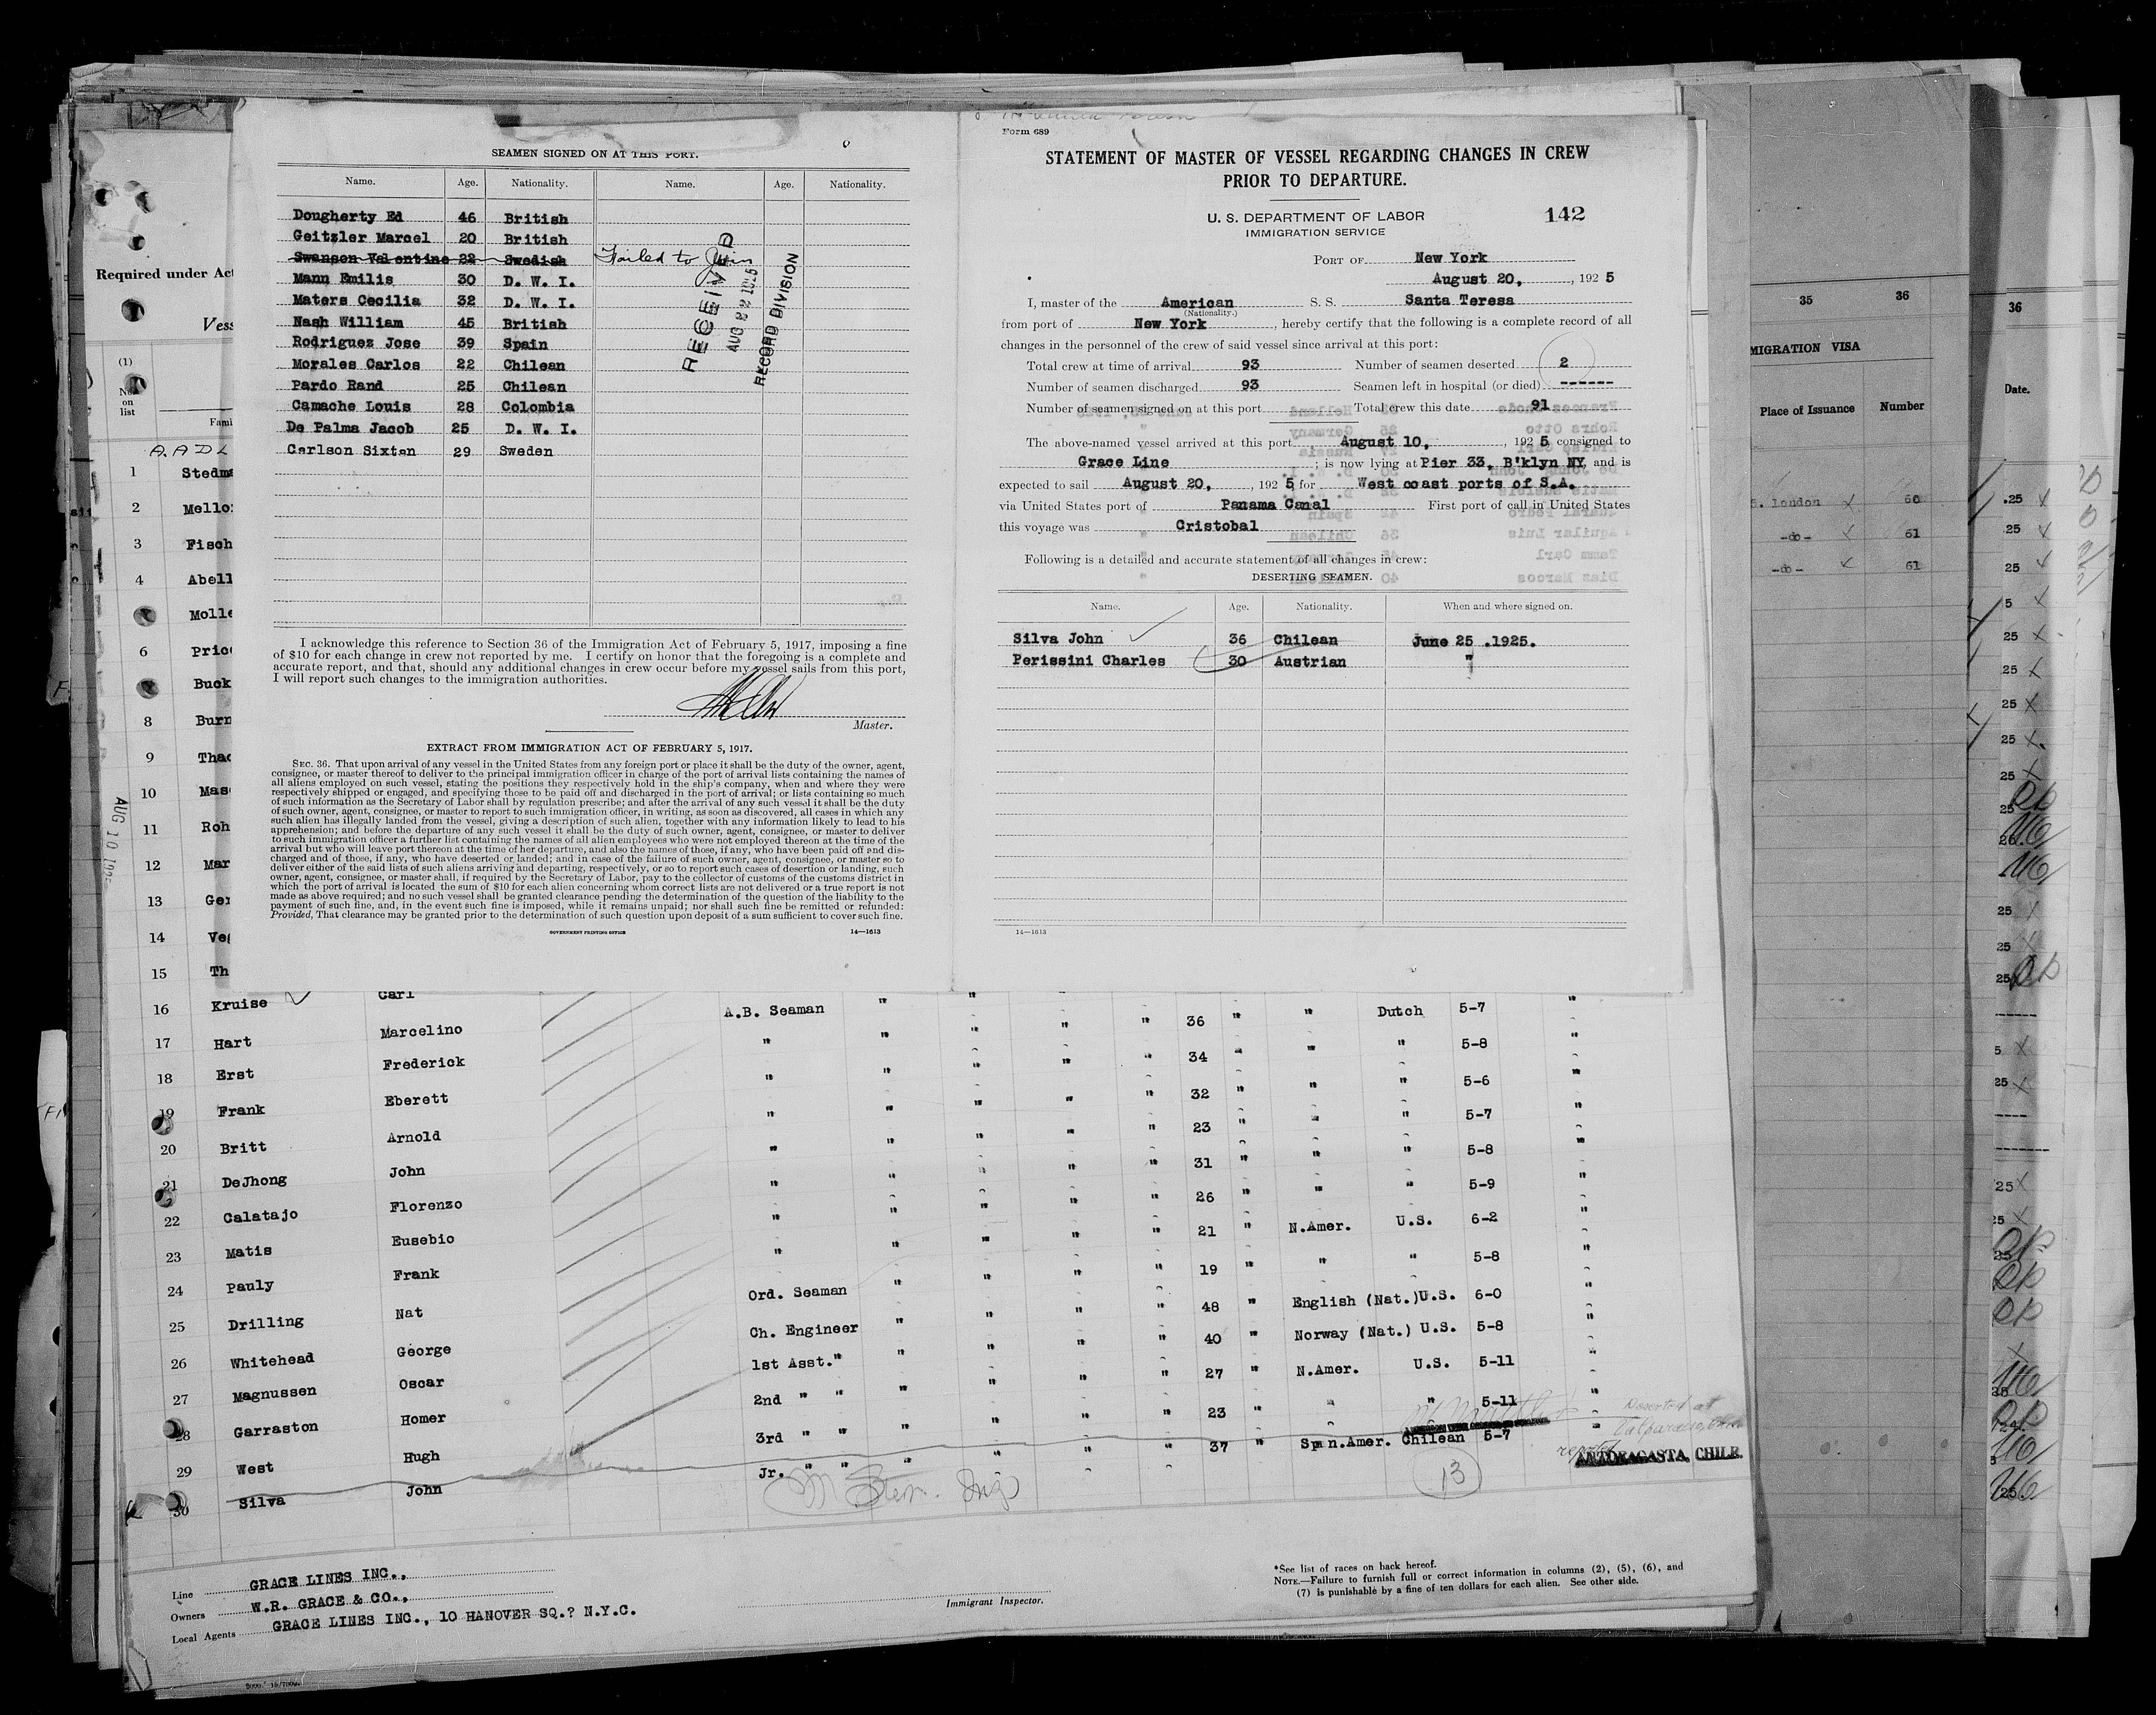 SEAMEN SIGNED ON AT THIS PORT.
Name. Age. Nationality. Name. Age. Nationality.
Dougherty Ed 46 British
Geitzler Marcel 20 British
Swanson Valentine 22 Swedish Failed to Join
Mann Emilis 30 D. W. I.
Maters Cecilia 32 D. W. I.
Nash William 45 British
Rodriguez Jose 39 Spain
Morales Carlos 22 Chilean
Pardo Rand 25 Chilean
Camache Louis 28 Colombia
De Palma Jacob 25 D. W. I.
Carlson Sixten 29 Sweden
RECEIVED
AUG 22 1925
RECORD DIVISION
I acknowledge this reference to Section 36 of the Immigration Act of February 5, 1917, imposing a fine
of $10 for each change in crew not reported by me. I certify on honor that the foregoing is a complete and
accurate report, and that, should any additional changes in crew occur before my vessel sails from this port,
I will report such changes to the immigration authorities.
Master.
EXTRACT FROM IMMIGRATION ACT OF FEBRUARY 5, 1917.
SEC. 36. That upon arrival of any vessel in the United States from any foreign port or place it shall be the duty of the owner, agent,
consignee, or master thereof to deliver to the principal immigration officer in charge of the port of arrival lists containing the names of
all aliens employed on such vessel, stating the positions they respectively hold in the ship's company, when and where they were
respectively shipped or engaged, and specifying those to be paid off and discharged in the port of arrival; or lists containing so much
of such information as the Secretary of Labor shall by regulation prescribe; and after the arrival of any such vessel it shall be the duty
of such owner, agent, consignee, or master to report to such immigration officer, in writing, as soon as discovered, all cases in which any
such alien has illegally landed from the vessel, giving a description of such alien, together with any information likely to lead to his
apprehension; and before the departure of any such vessel it shall be the duty of such owner, agent, consignee, or master to deliver
to such immigration officer a further list containing the names of all alien employees who were not employed thereon at the time of the
arrival but who will leave port thereon at the time of her departure, and also the names of those, if any, who have been paid off and dis-
charged and of those, if any, who have deserted or landed; and in case of the failure of such owner, agent, consignee, or master so to
deliver either of the said lists of such aliens arriving and departing, respectively, or so to report such cases of desertion or landing, such
owner, agent, consignee, or master shall, if required by the Secretary of Labor, pay to the collector of customs of the customs district in
which the port of arrival is located the sum of $10 for each alien concerning whom correct lists are not delivered or a true report is not
made as above required; and no such vessel shall be granted clearance pending the determination of the question of the liability to the
payment of such fine, and, in the event such fine is imposed, while it remains unpaid; nor shall such fine be remitted or refunded:
Provided, That clearance may be granted prior to the determination of such question upon deposit of a sum sufficient to cover such fine.
GOVERNMENT PRINTING OFFICE 14—1613
Form 689
STATEMENT OF MASTER OF VESSEL REGARDING CHANGES IN CREW
PRIOR TO DEPARTURE.
U. S. DEPARTMENT OF LABOR
IMMIGRATION SERVICE
142
PORT OF New York
August 20, , 192 5
I, master of the American S. S. Santa Teresa
(Nationality.)
from port of New York , hereby certify that the following is a complete record of all
changes in the personnel of the crew of said vessel since arrival at this port:
Total crew at time of arrival 93 Number of seamen deserted 2
Number of seamen discharged 93 Seamen left in hospital (or died) ------
Number of seamen signed on at this port Total crew this date 91
The above-named vessel arrived at this port August 10, , 192 5 consigned to
Grace Line ; is now lying at Pier 33, B'klyn NY, and is
expected to sail August 20, , 192 5 for West coast ports of S.A.
via United States port of Panama Canal First port of call in United States
this voyage was Cristobal
Following is a detailed and accurate statement of all changes in crew:
DESERTING SEAMEN.
Name. Age. Nationality. When and where signed on.
Silva John 36 Chilean June 25 .1925.
Perissini Charles 30 Austrian "
14—1613
Required under Act
Vess
(1)
No.
on
list
Fami
1 Stedma
2 Mello
3 Fisch
4 Abell
Molle
6 Pric
Buck
8 Burn
9 Thac
10 Mas
11 Roh
12 Mar
13 Ger
14 Veg
15 Th
AUG 10 192
16 Kruise Carl A.B. Seaman " " " " 36 " " Dutch 5-7 "
17 Hart Marcelino " " " " " 34 " " " 5-8 "
18 Erst Frederick " " " " " 32 " " " 5-6 "
19 Frank Eberett " " " " " 23 " " " 5-7 "
20 Britt Arnold " " " " " 31 " " " 5-8 "
21 DeJhong John " " " " " 26 " " " 5-9 "
22 Calatajo Florenzo " " " " " 21 " N.Amer. U.S. 6-2 "
23 Matis Eusebio " " " " " 19 " " " 5-8 "
24 Pauly Frank Ord. Seaman " " " " 48 " English (Nat.) U.S. 6-0 "
25 Drilling Nat Ch. Engineer " " " " 40 " Norway (Nat.) U.S. 5-8 "
26 Whitehead George 1st Asst." " " " " 27 " N.Amer. U.S. 5-11 "
27 Magnussen Oscar 2nd " " " " " " 23 " " " 5-11 "
28 Garraston Homer 3rd " " " " " " 37 " Span.Amer. Chilean 5-7 "
29 West Hugh Jr. " "
30 Silva John
13
Deserted at
Valparaiso
reported
ANTOFAGASTA, CHILE.
Line GRACE LINES INC.,
Owners W.R. GRACE & CO.,
Local Agents GRACE LINES INC., 10 HANOVER SQ.? N.Y.C.
Immigrant Inspector.
*See list of races on back hereof.
NOTE.—Failure to furnish full or correct information in columns (2), (5), (6), and
(7) is punishable by a fine of ten dollars for each alien. See other side.
35 36
MIGRATION VISA
Place of Issuance Number
S. London 60
-do- 61
-do- 61
36
Date.
.25
25
25
5
25
25
25
25
25
25
26.
25
25
25